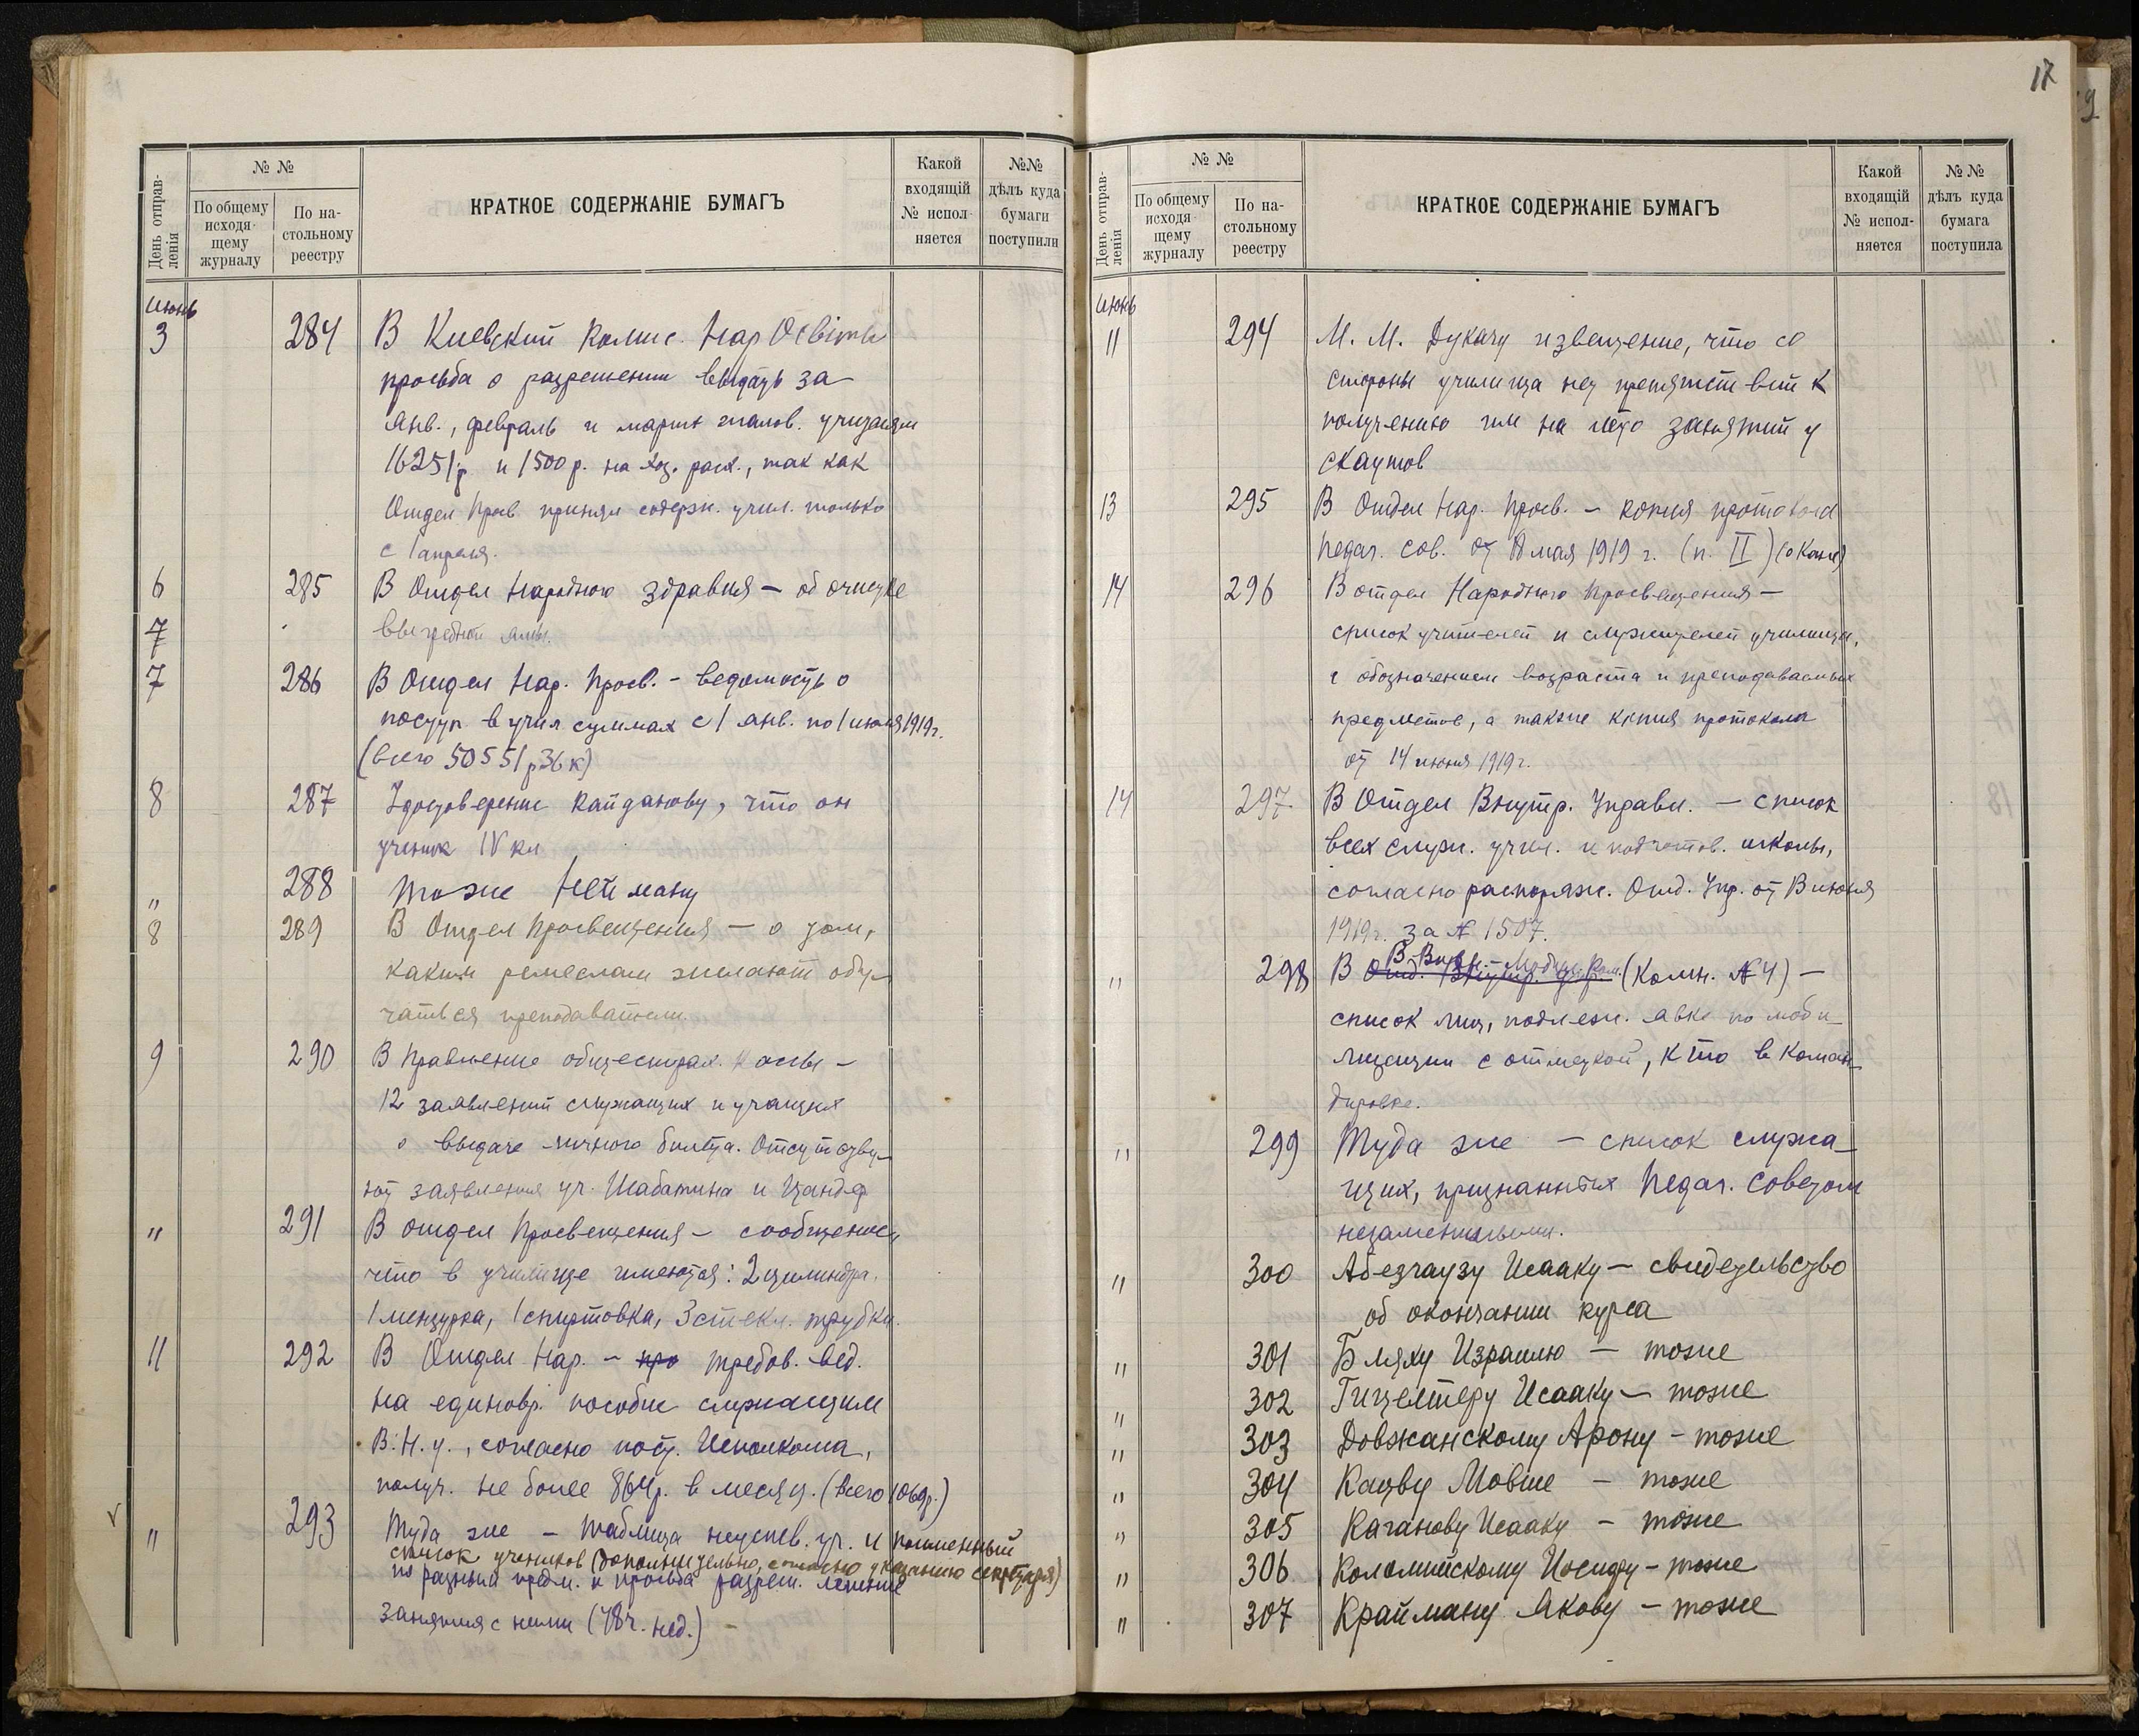 17
День отправ-
ленія
№ №
По общему
исходя-
щему
журналу
По на-
стольному
реестру
КРАТКОЕ СОДЕРЖАНІЕ БУМАГЪ
Какой
входящій
№ испол-
няется
№№
дѣлъ куда
бумаги
поступили
Июнь
3 284 В Киевский Комис. Нар Освіти
просьба о разрешении выдать за
Янв., февраль и март жалов. учителям
16251 р. и 1500 р. на хоз. расх., так как
Отдел Просв принял содерж. учил. только
с 1 апреля.
6 285 В Отдел Народного здравия — об очистке
7 выгребной ямы.
7 286 В Отдел Нар. Просв. - ведомость о
поступ. в учил суммах с 1 янв. по 1 июня 1919г.
(всего 50551 р 36 к)
8 287 Удостоверение Кайданову, что он
ученик IV кл
" 288 Тоже Нейману
8 289 В Отдел Просвещения — о том,
каким ремеслам желают обу-
чаться преподаватели.
9 290 В Правление общестрах. Кассы —
12 заявлений служащих и учащих
о выдаче личного билета. Отсутству-
ют заявления уч. Шабатина и Цандер
" 291 В отдел Просвещения — сообщение,
что в училище имеются: 2 цилиндра,
1 мензурка, 1 спиртовка, 3 стекл. трубки.
11 292 В Отдел Нар. — про требов. вед.
на единовр. пособие служащим
В.Н.у., согласно пост. Исполкома,
получ. не более 864 р. в месяц. (всего 1060р.)
" 293 Туда же — таблица неуспев. уч. и поименный
список учеников (дополнительно, согласно указанию секретаря)
по разным предм. и просьба разреш. летние
занятия с ними (48 ч. нед.)
День отправ-
ленія
№ №
По общему
исходя-
щему
журналу
По на-
стольному
реестру
КРАТКОЕ СОДЕРЖАНІЕ БУМАГЪ
Какой
входящій
№ испол-
няется
№ №
дѣлъ куда
бумага
поступила
Июнь
11 294 М. М. Дукачу извещение, что со
стороны училища нет препятствий к
получению им на лето занятий у
скаутов
13 295 В Отдел Нар. Просв. — копия протокола
Педаг. Сов. от мая 1919 г. (п. II)
14 296 В отдел Народного Просвещения —
список учителей и служителей училища,
с обозначением возраста и преподаваемых
предметов, а также копия протокола
от 14 июня 1919 г.
14 297 В Отдел Внутр. Управл. — список
всех служ. учил. и подготов. школы,
согласно распоряж. Отд. Упр. от 13 июня
1919 г. за № 1507.
" 298 В Отд. Внутр. Упр. (Комн. № 4) —
список лиц, подлеж. явке по моби
лизации с отметкой, кто в коман
дировке.
" 299 Туда же — список служа-
щих, признанных Педаг. Советом
незаменимыми.
" 300 Абезгаузу Исааку — свидетельство
об окончании курса
" 301 Бляху Израилю — тоже
" 302 Гицелтеру Исааку — тоже
" 303 Довжанскому Арону — тоже
" 304 Кацву Мовше — тоже
" 305 Каганову Исааку — тоже
" 306 Коломийскому Иосифу — тоже
" 307 Крайману Якову — тоже